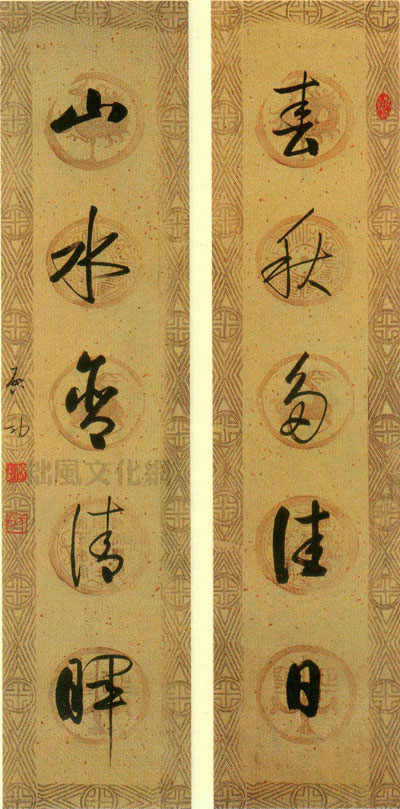 春秋多佳日
山水含清暉
启功
拙風文化網